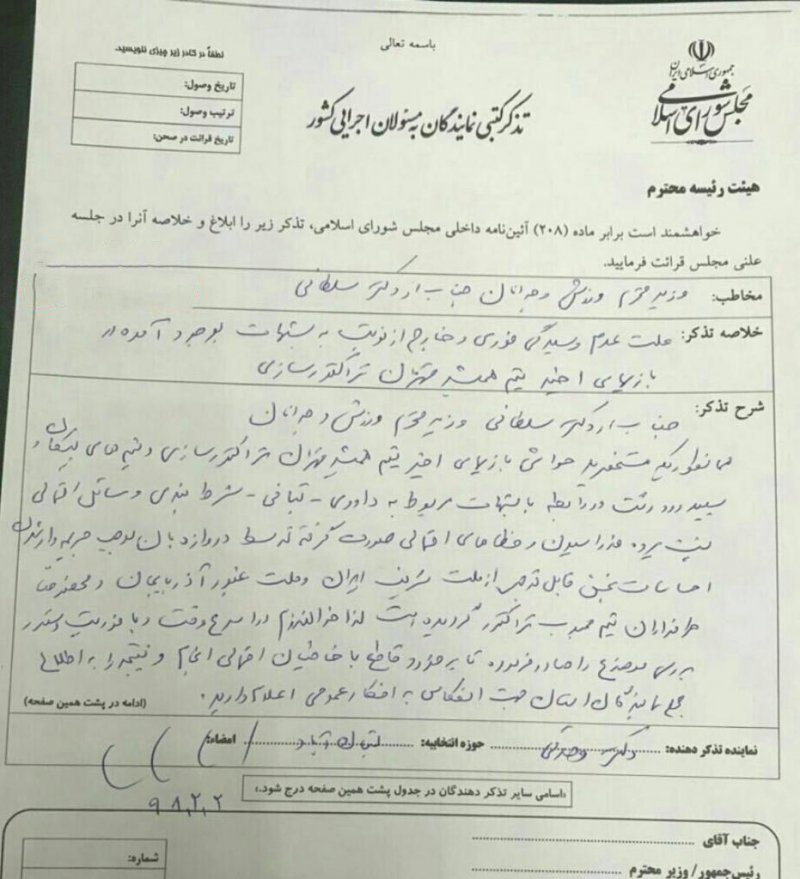 باسمه تعالی
جمهوری اسلامی ایران
مجلس شورای اسلامی
لطفاً در کادر زیر چیزی ننویسید.
تاریخ وصول:
ترتیب وصول:
تاریخ قرائت در صحن:
تذکر کتبی نمایندگان به مسئولان اجرایی کشور
هیئت رئیسه محترم
خواهشمند است برابر ماده (۲۰۸) آئین‌نامه داخلی مجلس شورای اسلامی، تذکر زیر را ابلاغ و خلاصه آنرا در جلسه
علنی مجلس قرائت فرمایید.
مخاطب: وزیر محترم ورزش و جوانان جناب آقای دکتر سلطانی
خلاصه تذکر: علت عدم رسیدگی فوری و خارج از نوبت به شبهات بوجود آمده در
بازیهای اخیر تیم همیشه قهرمان تراکتورسازی
شرح تذکر: جناب آقای دکتر سلطانی وزیر محترم ورزش و جوانان
همانطوریکه مستحضرید حواشی بازیهای اخیر تیم همیشه قهرمان تراکتورسازی و تیم های پیکان و
سپیدرود رشت در رابطه با شبهات مربوط به داوری - تبانی - شرط بندی و مسائل احتمالی
پشت پرده فدراسیون و خطاهای احتمالی صورت گرفته توسط دروازه بان موجب جریحه دار شدن
احساسات بخش قابل توجهی از ملت شریف ایران و ملت غیور آذربایجان و مخصوصاً
طرفداران تیم محبوب تراکتور گردیده است لذا خواهشمندم در اسرع وقت و با فوریت دستور
بررسی موضوع را صادر فرموده تا برخورد قاطع با خاطیان احتمالی انجام و نتیجه را به اطلاع
مجمع نمایندگان استان جهت انعکاس به افکار عمومی اعلام دارید.
(ادامه در پشت همین صفحه)
نماینده تذکر دهنده: دکتر وحدتی حوزه انتخابیه: بستان آباد امضاء:
۹۸,۲,۲
«اسامی سایر تذکر دهندگان در جدول پشت همین صفحه درج شود.»
جناب آقای
رئیس‌جمهور/ وزیر محترم
شماره: